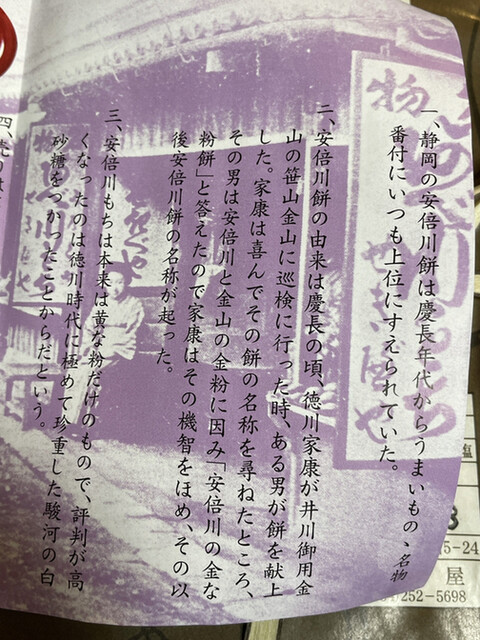 一、静岡の安倍川餅は慶長年代からうまいもの、名物
番付にいつも上位にすえられていた。
二、安倍川餅の由来は慶長の頃、徳川家康が井川御用金
山の笹山金山に巡検に行った時、ある男が餅を献上
した。家康は喜んでその餅の名称を尋ねたところ、
その男は安倍川と金山の金粉に因み「安倍川の金な
粉餅」と答えたので家康はその機智をほめ、その以
後安倍川餅の名称が起った。
三、安倍川もちは本来は黄な粉だけのもので、評判が高
くなったのは徳川時代に極めて珍重した駿河の白
砂糖をつかったことからだという。
屋
252-5698